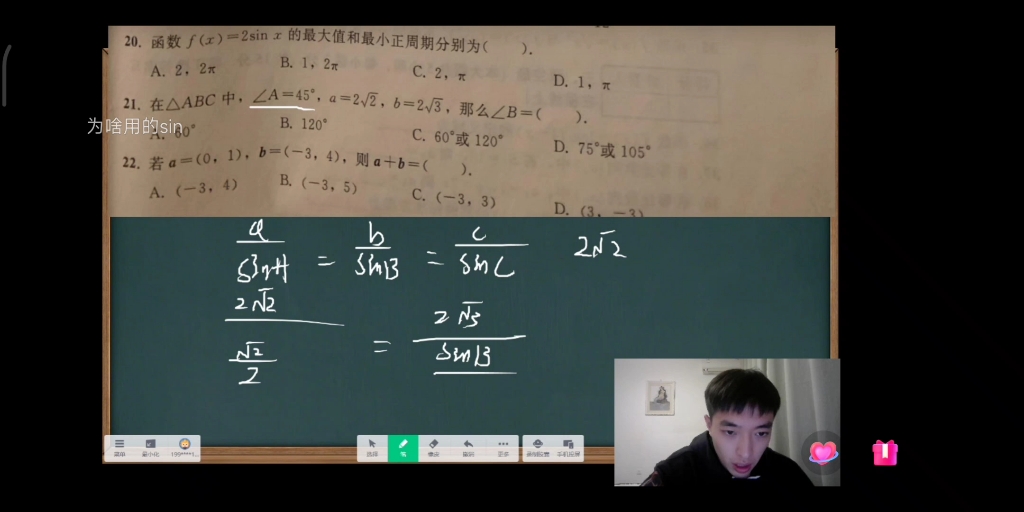 20. 函数 f(x)=2sin x 的最大值和最小正周期分别为( ).
A. 2, 2π B. 1, 2π C. 2, π D. 1, π
21. 在△ABC 中, ∠A=45°, a=2√2, b=2√3, 那么∠B=( ).
为啥用的sin
A. 60° B. 120° C. 60°或 120° D. 75°或 105°
22. 若 a=(0, 1), b=(-3, 4), 则 a+b=( ).
A. (-3, 4) B. (-3, 5) C. (-3, 3) D. (3, -3)
a/sinA = b/sinB = c/sinC 2√2
2√2/(√2/2) = 2√3/sinB
菜单 最小化 选择 笔 撤销 更多 手机投屏